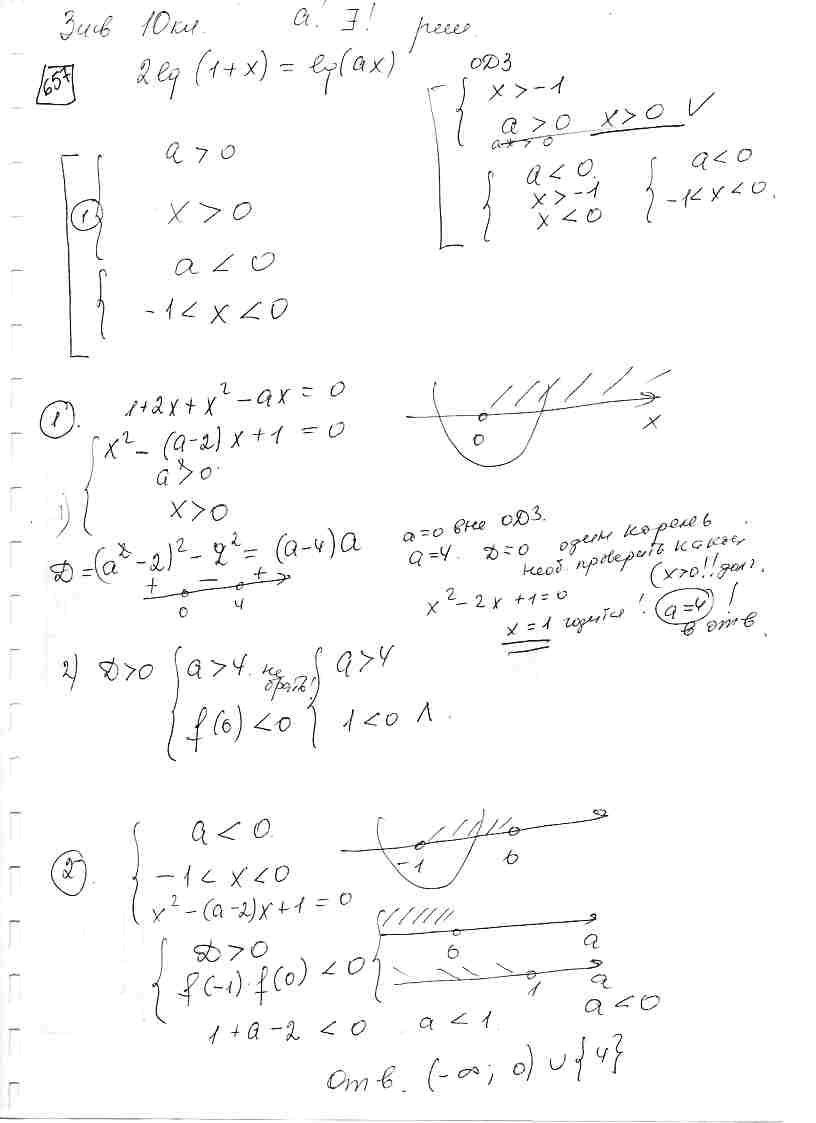 10 кл. a! ∃! реш.
657 2lg(1+x) = lg(ax)
ОДЗ
x > -1
a > 0 x > 0 V
ax > 0
a < 0
x > -1
x < 0
a < 0
-1 < x < 0.
a > 0
1
x > 0
a < 0
-1 < x < 0
1. 1+2x+x² - ax = 0
x² - (a-2)x + 1 = 0
a > 0
x > 0
0
x
1)
D = (a-2)² - 2² = (a-4)a
+ - +
0 4
a=0 вне ОДЗ.
a=4. D=0 один корень
необ проверить какой
(x>0!! долж.
x² - 2x + 1 = 0
x = 1 годится! a=4 !
в отв.
2) D>0 a > 4 не брать! a > 4
f(0) < 0 1 < 0 Λ.
2. a < 0
-1 < x < 0
x² - (a-2)x + 1 = 0
-1 0
D > 0
f(-1)·f(0) < 0
0 a
1 a
1 + a - 2 < 0 a < 1 a < 0
Отв. (-∞; 0) ∪ {4}